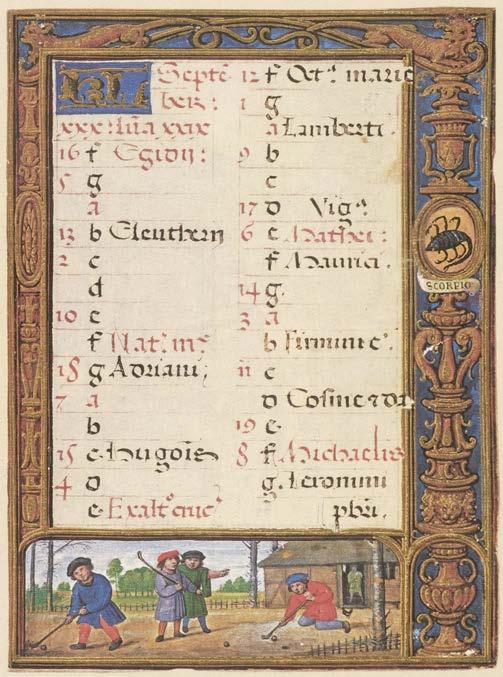 KL Septē
ber:
xxx: lūa xxix
16 f Egidii:
5 g
a
13 b Eleutherii
2 c
d
10 e
f Nat: m
18 g Adriani;
7 a
b
15 c Hugōis
4 d
e Exalt° cruc
12 f Oct a marie
1 g
a Lamberti.
9 b
c
17 d Vig a
6 e Mathei:
f Mauricii.
14 g.
3 a
b Firmini e
11 c
d Cosme & da
19 e
8 f Michaelis
g. Ieronimi
pbri.
SCORPIO